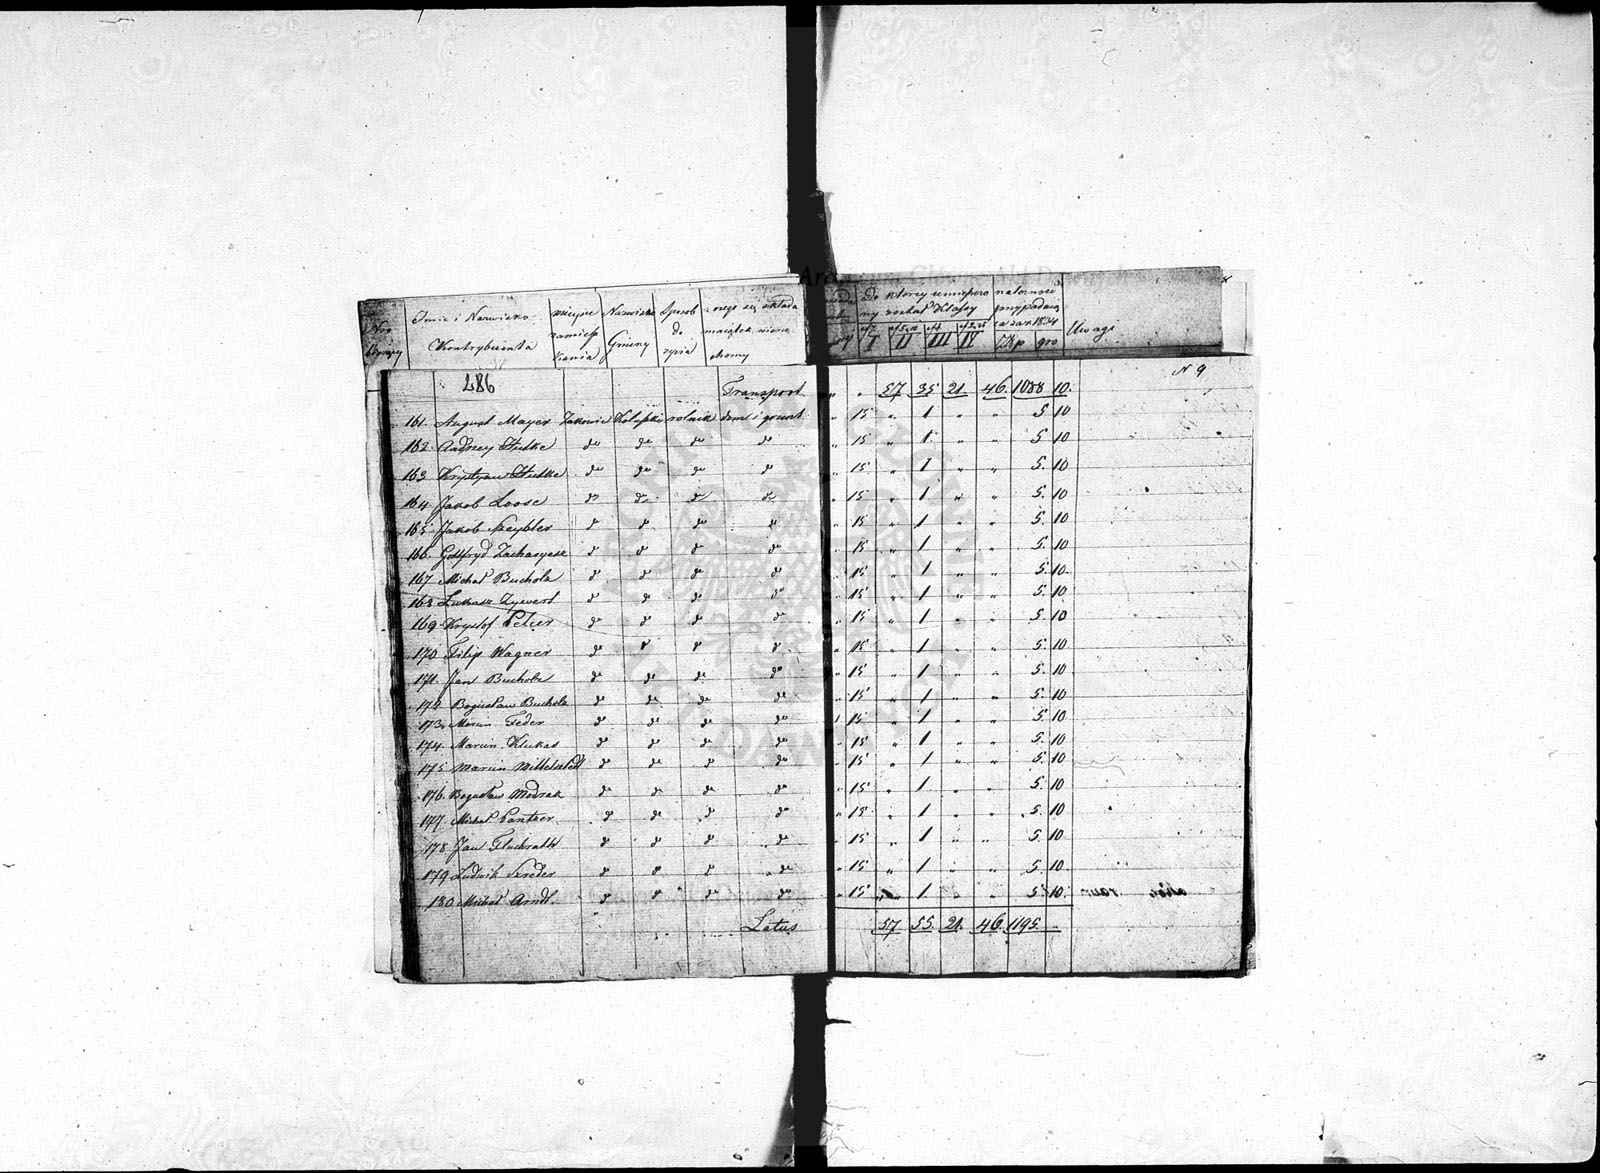 Imie i Nazwisko Kontrybuenta
mieysce zamieszkania
Nazwisko Gminy
Sposob do życia
z czego się składa maiątek nieruchomy
Do ktorey umieszczony został Klassy
I II III IV
należność przypadaiąca za rok 1834
Złp gro
Uwagi
286 Transport " " 57 35 21 46 1088 10 N 9
161 August Mayer Zakowie Koluszki rolnik dom i grunt " 15 " 1 " " 5 10
162 Andrzey Hutke do do do do " 15 " 1 " " 5 10
163 Krystyan Hutke do do do do " 15 " 1 " " 5 10
164 Jakob Loose do do do do " 15 " 1 " " 5 10
165 Jakob Szeybler do do do do " 15 " 1 " " 5 10
166 Gotfryd Zacharyasz do do do do " 15 " 1 " " 5 10
167 Michał Bucholz do do do do " 15 " 1 " " 5 10
168 Łukasz Zywert do do do do " 15 " 1 " " 5 10
169 Krysztof Peter do do do do " 15 " 1 " " 5 10
170 Filip Wagner do do do do " 15 " 1 " " 5 10
171 Jan Bucholz do do do do " 15 " 1 " " 5 10
172 Bogusław Bucholz do do do do " 15 " 1 " " 5 10
173 Marcin Feder do do do do " 15 " 1 " " 5 10
174 Marcin Klukas do do do do " 15 " 1 " " 5 10
175 Marcin Mittelstedt do do do do " 15 " 1 " " 5 10
176 Bogusław Modrak do do do do " 15 " 1 " " 5 10
177 Michał Pantzer do do do do " 15 " 1 " " 5 10
178 Jan Fluhrath do do do do " 15 " 1 " " 5 10
179 Ludwik Szreder do do do do " 15 " 1 " " 5 10
180 Michał Arndt do do do do " 15 " 1 " " 5 10
Latus 57 55 21 46 1195 "